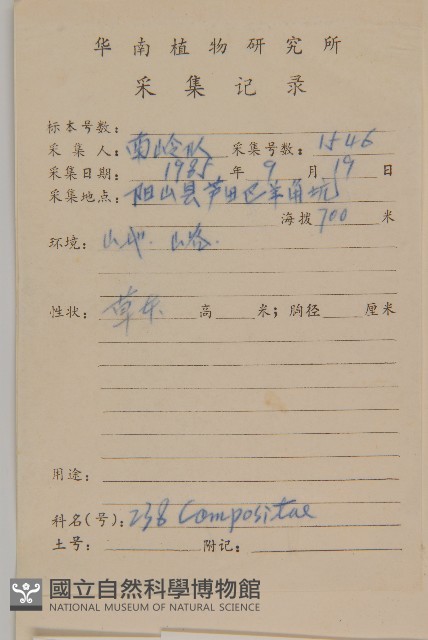 华南植物研究所
采集记录
标本号数：
采集人：南岭队 采集号数：1546
采集日期：1985年9月19日
采集地点：阳山县芦田区羊角坑
海拨700米
环境：山地. 山路.
性状：草本 高 米；胸径 厘米
用途：
科名（号）：238 Compositae
土号： 附记：
國立自然科學博物館
NATIONAL MUSEUM OF NATURAL SCIENCE